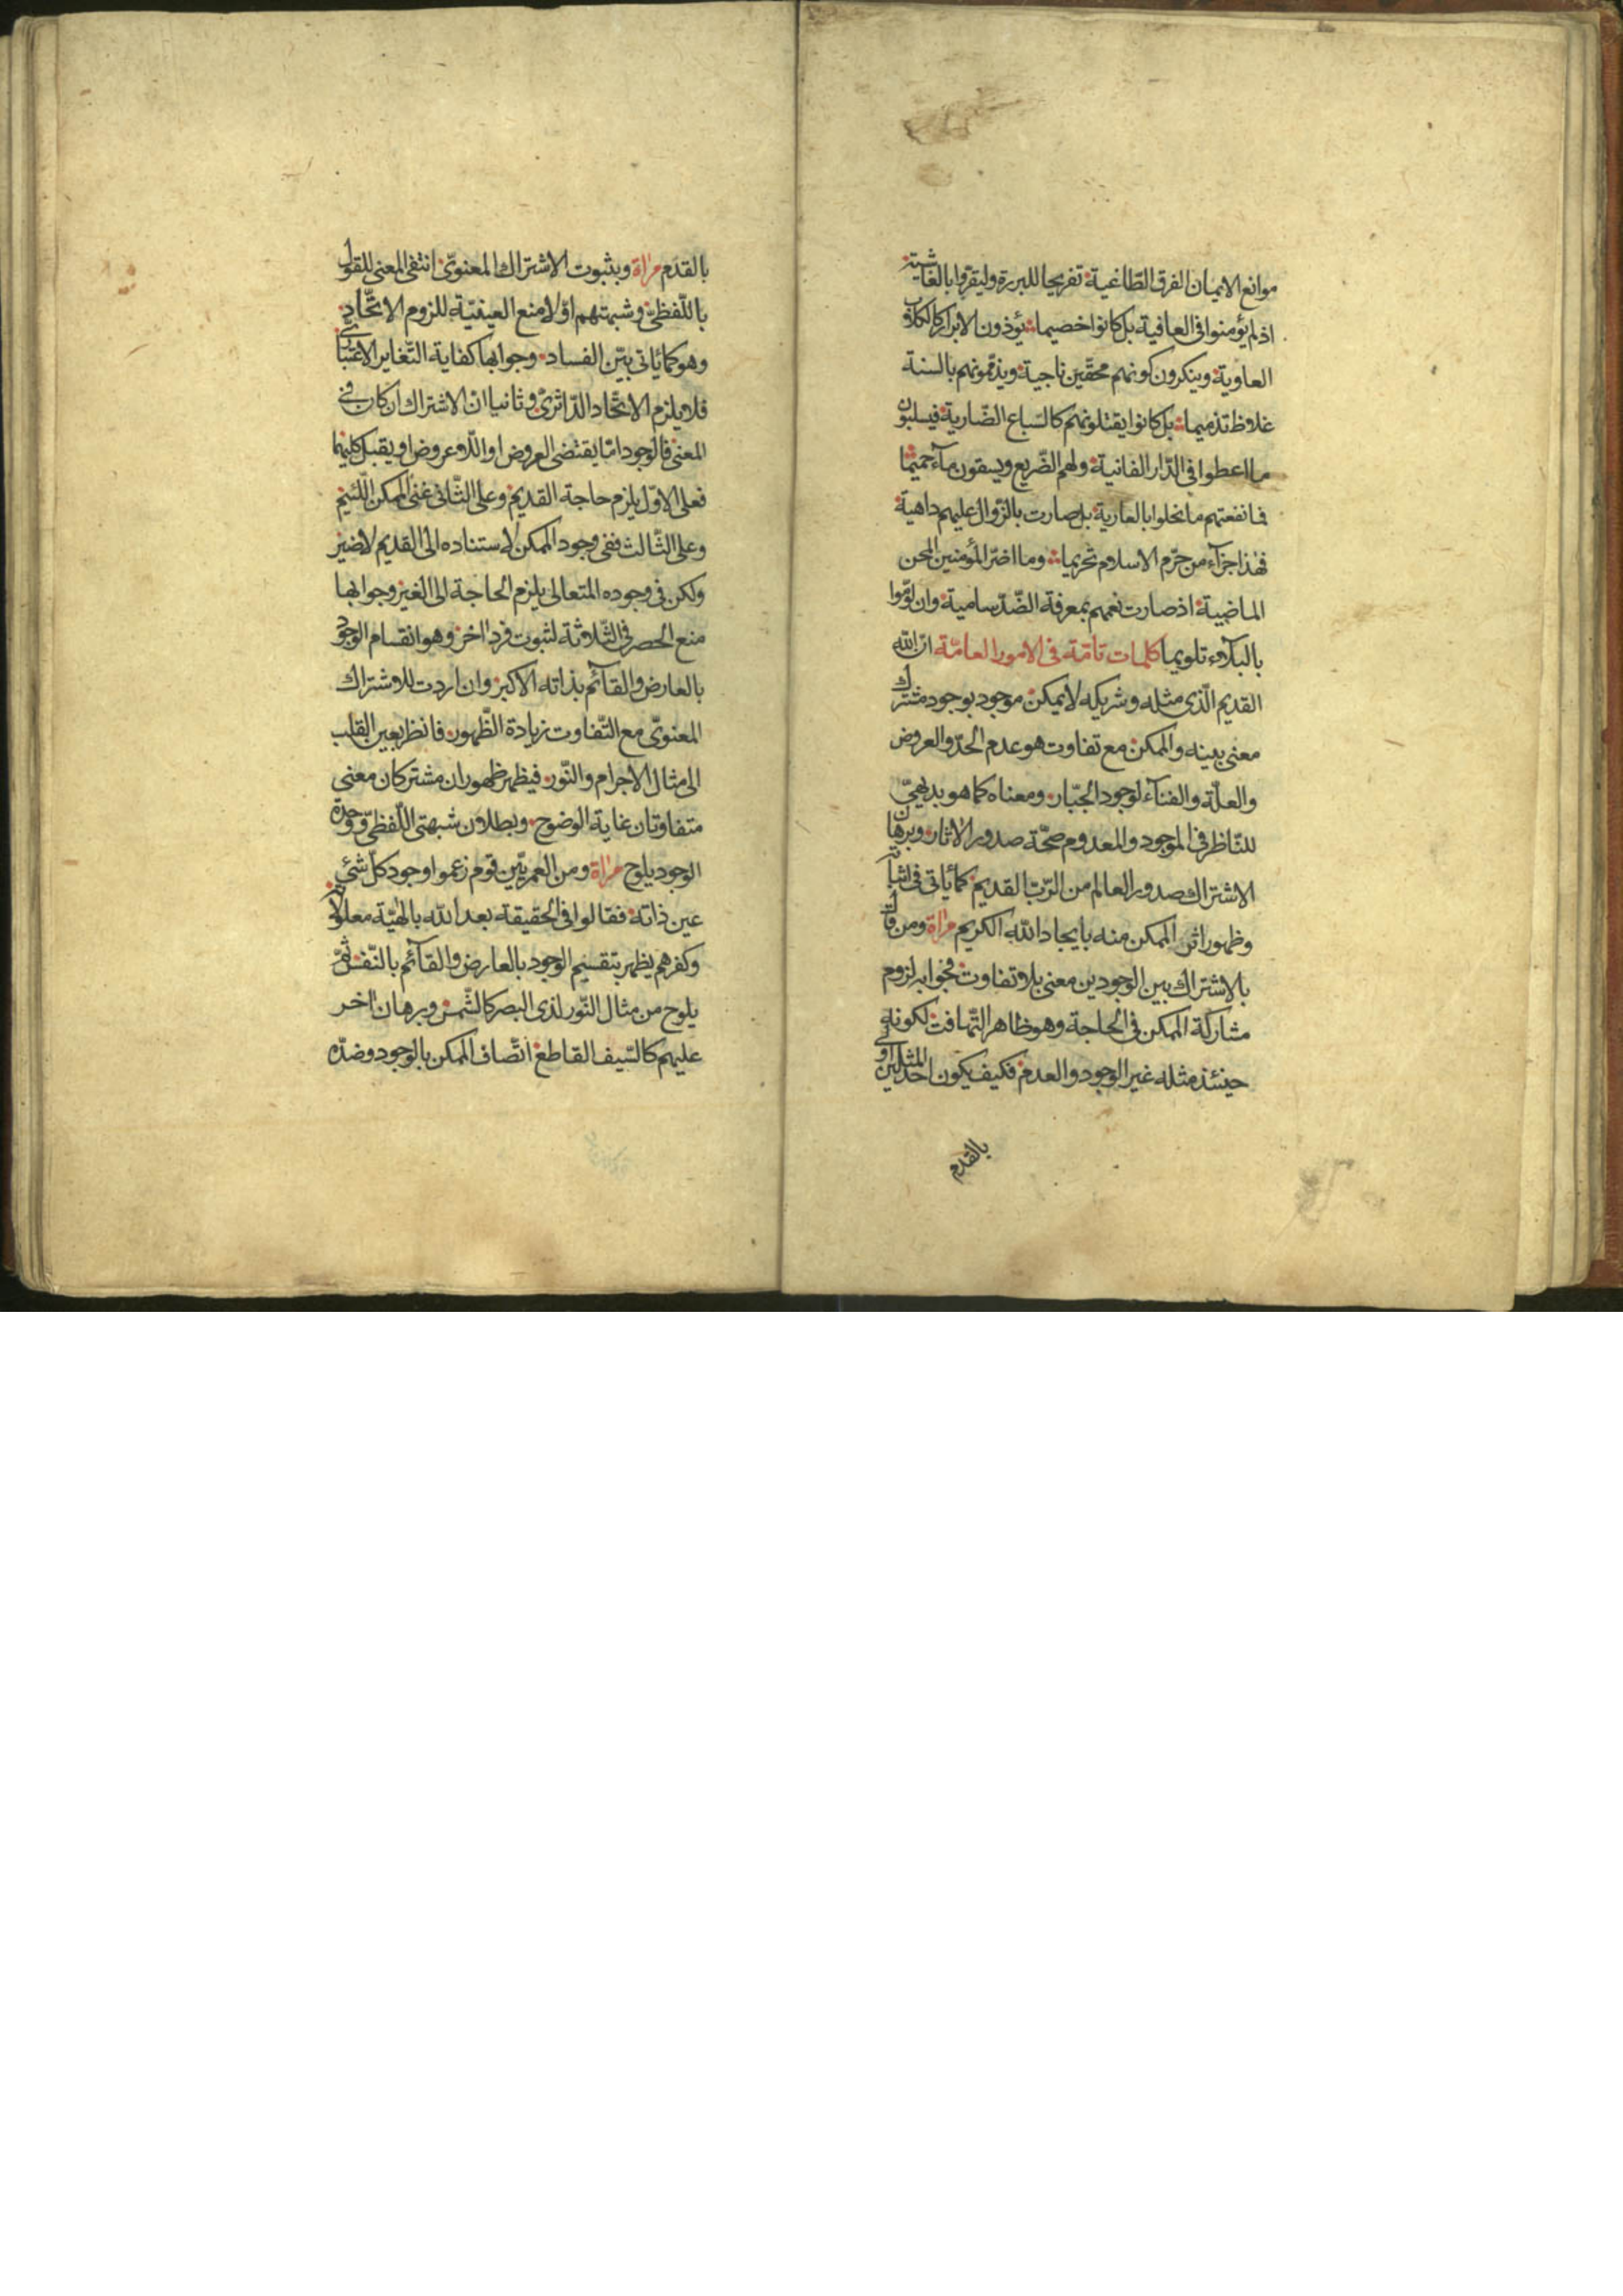 موانع الايمان الفرق الطّاغية تفريحا للبررة وليقرّوا بالغاشية
اذ لم يؤمنوا فى العافية بل كانوا خصيما يؤذون الابرار كالكلاب
العاوية وينكرون كونهم محقّين ناجية ويذمّونهم بالسنة
غلاظ تذميما بل كانوا يقتلونهم كالسّباع الضّارية فيسلبون
ما اعطوا فى الدّار الفانية ولهم الضّريع ويسقون مآء حميما
فما نفعتهم ما نحلوا بالعارية بل صارت بالزّوال عليهم داهية
فهذا جزآء من حرّم الاسلام تحريما وما اضرّ المؤمنين المحن
الماضية اذ صارت نعمهم بمعرفة الضّدّ سامية وان لوّموا
بالبلآء تلويما كلمات تامّة فى الامور العامّة انّ الله
القديم الّذى مثله وشريكه لا يمكن موجود بوجود مشترك
معنى بينه والممكن مع تفاوت هو عدم الحدّ والعروض
والعلّة والفنآء لوجود الجبّار ومعناه كما هو بديهىّ
للنّاظر فى الموجود والمعدوم صحّة صدور الاثار وبرهان
الاشتراك صدور العالم من الرّبّ القديم كما يأتى فى اثباته
وظهور اثر الممكن منه بايجاد الله الكريم مرأة ومن قال
بالاشتراك بين الوجودين معنى بلا تفاوت فجوابه لزوم
مشاركة الممكن فى الحاجة وهو ظاهر التّهافت لكونه
حينئذ مثله غير الوجود والعدم فكيف يكون احد المثلين اولى
بالقدم
بالقدم مرأة وبثبوت الاشتراك المعنوىّ انتفى المعنى للقول
باللّفظىّ وشبهتهم اوّلا منع العينيّة للزوم الاتّحاد
وهو كما يأتى بيّن الفساد وجوابها كفاية التّغاير الاعتبارى
فلا يلزم الاتّحاد الدّاثرىّ وثانيا انّ الاشتراك ان كان فى
المعنى فالوجود امّا يقتضى العروض او اللّاعروض او يقبل كليهما
فعلى الاوّل يلزم حاجة القديم وعلى الثّانى غنى الممكن اللّئيم
وعلى الثّالث ففى وجود الممكن لاستناده الى القديم لا ضير
ولكن فى وجوده المتعالى يلزم الحاجة الى الغير وجوابها
منع الحصر فى الثّلاثة لثبوت فرد اخر وهو انقسام الوجود
بالعارض والقآئم بذاته الاكبر وان اردت للاشتراك
المعنوىّ مع التّفاوت زيادة الظّهور فانظر بعين القلب
الى مثال الاجرام والنّور فيظهر ظهور ان مشتركان معنى
متفاوتان غاية الوضوح وبطلان شبهتى اللّفظىّ ووحدة
الوجود يلوح مرأة ومن العمريّين قوم زعموا وجود كلّ شئ
عين ذاته فقالوا فى الحقيقة بعد الله بالهيّة معلولاته
وكفرهم يظهر بتقسيم الوجود بالعارض والقآئم بالنّفس ثمّ
يلوح من مثال النّور لذى البصر كالشّمس وبرهان اخر
عليهم كالسّيف القاطع اتّصاف الممكن بالوجود وضدّه